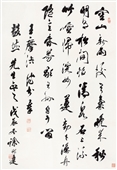 空山新雨後天氣晚來秋
明月松間照清泉石上流竹
喧歸浣女蓮動下漁舟
隨意春芳歇王孫自可留
王摩詰
先生